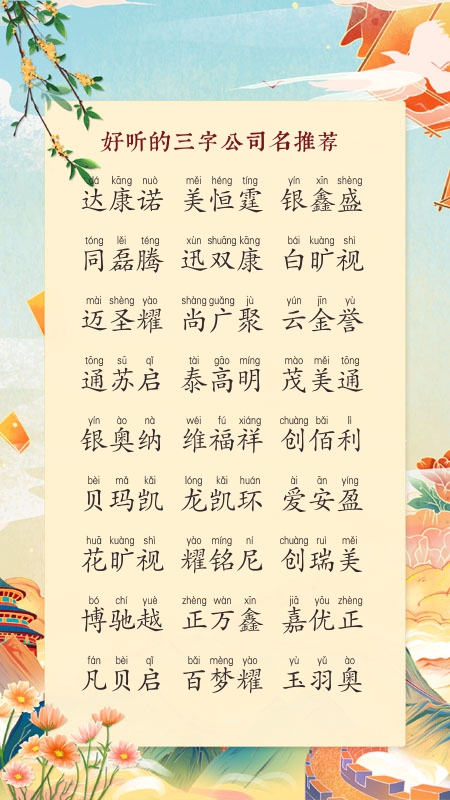 好听的三字公司名推荐
dá kāng nuò měi héng tíng yín xīn shèng
达康诺 美恒霆 银鑫盛
tóng lěi téng xùn shuāng kāng bái kuàng shì
同磊腾 迅双康 白旷视
mài shèng yào shàng guǎng jù yún jīn yù
迈圣耀 尚广聚 云金誉
tōng sū qǐ tài gāo míng mào měi tōng
通苏启 泰高明 茂美通
yín ào nà wéi fú xiáng chuàng bǎi lì
银奥纳 维福祥 创佰利
bèi mǎ kǎi lóng kǎi huán ài ān yíng
贝玛凯 龙凯环 爱安盈
huā kuàng shì yào míng ní chuàng ruì měi
花旷视 耀铭尼 创瑞美
bó chí yuè zhèng wàn xīn jiā yōu zhèng
博驰越 正万鑫 嘉优正
fán bèi qǐ bǎi mèng yào yù yǔ ào
凡贝启 百梦耀 玉羽奥